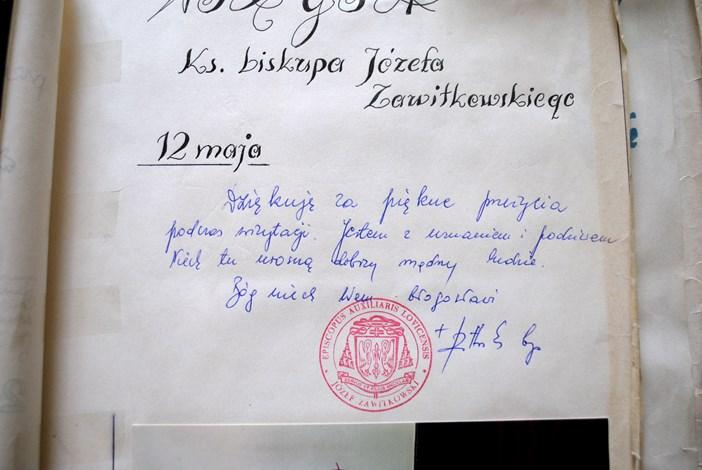 Ks. biskupa Józefa
Zawitkowskiego
12 maja
Dziękuję za piękne przeżycia
podczas wizytacji. Jestem z uznaniem i podziwem
Niech tu wrosną dobrzy mądrzy ludzie.
Bóg niech Wam błogosławi
+ bp
EPISCOPUS AUXILIARIS LOVICENSIS
JÓZEF ZAWITKOWSKI